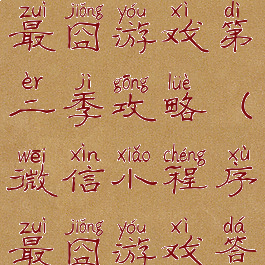 zuì jiǒng yóu xì dì
最囧游戏第
èr jì gōng lüè
二季攻略（
wēi xìn xiǎo chéng xù
微信小程序
zuì jiǒng yóu xì dá
最囧游戏答